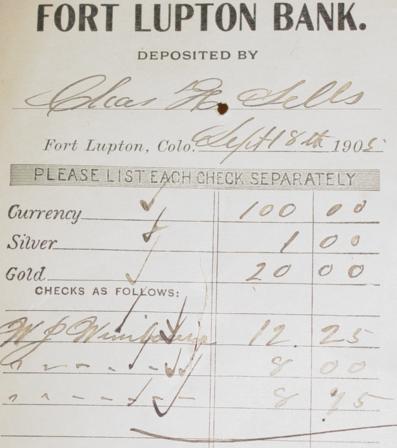 FORT LUPTON BANK.
DEPOSITED BY
Chas H. Sells
Fort Lupton, Colo. Sept 8th 1905
PLEASE LIST EACH CHECK SEPARATELY
Currency 100 00
Silver 1 00
Gold 20 00
CHECKS AS FOLLOWS:
W J 12.25
" " 8 00
" " 8 75